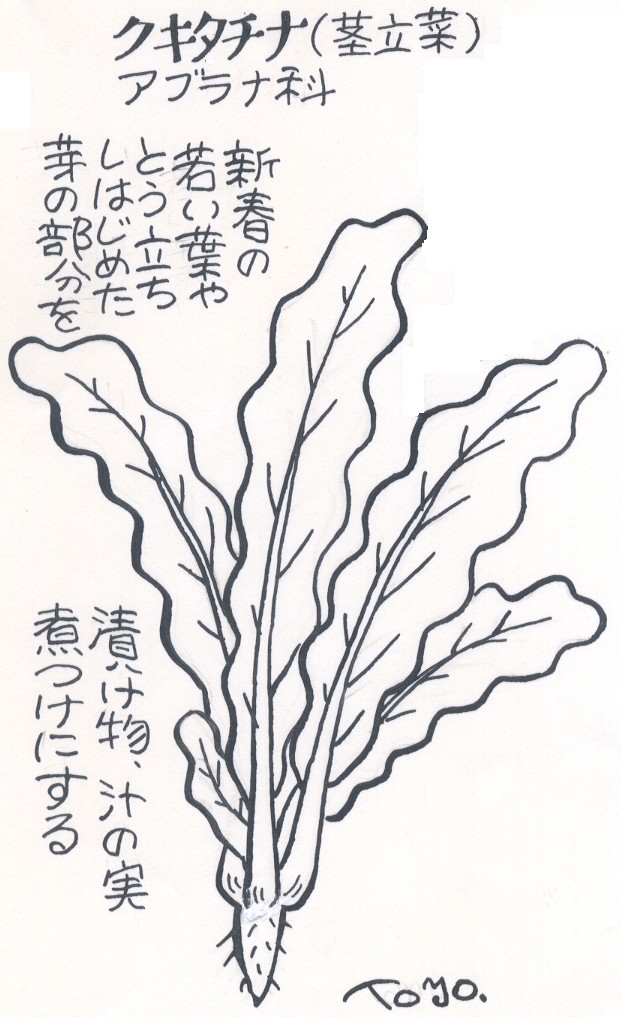 クキタチナ(茎立菜)
アブラナ科
新春の
若い葉や
とう立ち
しはじめた
芽の部分を
漬け物、汁の実
煮つけにする
TOYO.